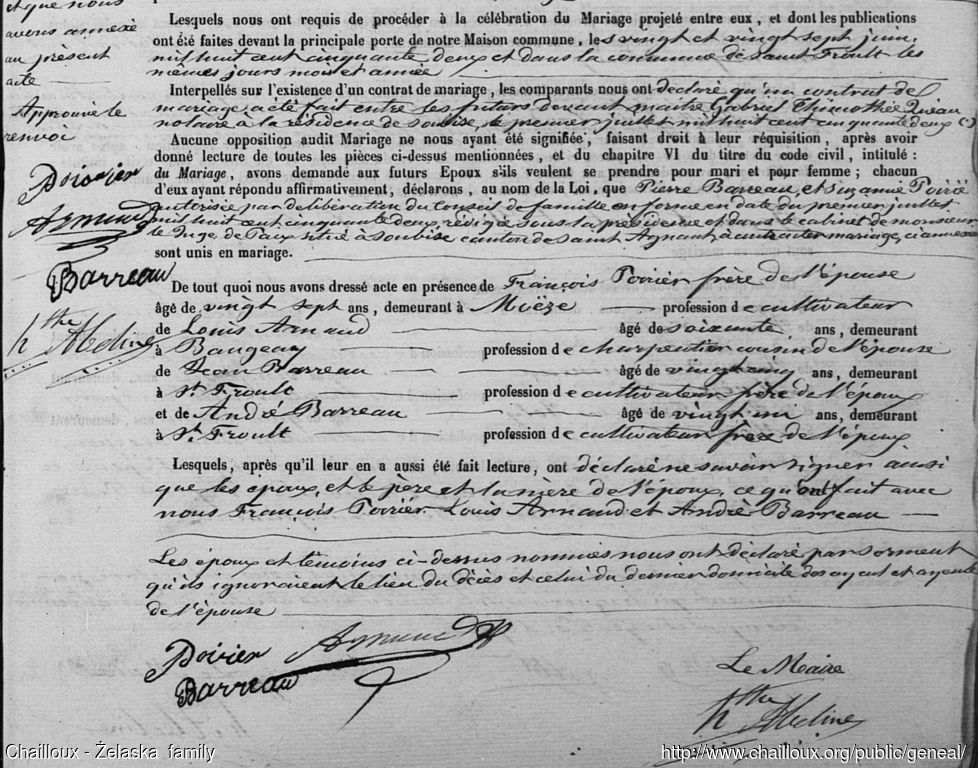 et que nous
avons annexé
au présent
acte
Approuvé le
renvoi
Poirier
Arnaud
Barreau
hthe Abeline
Lesquels nous ont requis de procéder à la célébration du Mariage projeté entre eux, et dont les publications
ont été faites devant la principale porte de notre Maison commune, les vingt et vingt sept juin,
mil huit cent cinquante deux et dans la commune de Saint Froult les
mêmes jours mois et année
Interpellés sur l'existence d'un contrat de mariage, les comparants nous ont déclaré qu'un contrat de
mariage a été fait entre les futurs devant maître Gabriel Thimothée
notaire à la résidence de Soubise, le premier juillet mil huit cent cinquante deux (-)
Aucune opposition audit Mariage ne nous ayant été signifiée, faisant droit à leur réquisition, après avoir
donné lecture de toutes les pièces ci-dessus mentionnées, et du chapitre VI du titre du code civil, intitulé :
du Mariage, avons demandé aux futurs Epoux s'ils veulent se prendre pour mari et pour femme; chacun
d'eux ayant répondu affirmativement, déclarons, au nom de la Loi, que Pierre Barreau, et Poirié
autorisée par délibération du Conseil de famille en forme en date du premier juillet
mil huit cent cinquante deux, rédigée sous la présidence et dans le cabinet de monsieur
le Juge de Paix situé à Soubise canton de Saint Agnant, à contracter mariage, ci annexée
sont unis en mariage.
De tout quoi nous avons dressé acte en présence de François Poirier frère de l'épouse
âgé de vingt sept ans, demeurant à Moëze profession de cultivateur
de Louis Arnaud âgé de soixante ans, demeurant
à Baugeay profession de charpentier cousin de l'épouse
de Jean Barreau âgé de vingt cinq ans, demeurant
à St. Froult profession de cultivateur frère de l'époux
et de André Barreau âgé de vingt un ans, demeurant
à St. Froult profession de cultivateur frère de l'époux
Lesquels, après qu'il leur en a aussi été fait lecture, ont déclaré ne savoir signer ainsi
que les époux, et le père et la mère de l'époux, ce qu'ont fait avec
nous François Poirier Louis Arnaud et André Barreau
Les époux et témoins ci-dessus nommés nous ont déclaré par serment
qu'ils ignoraient le lieu du décès et celui du dernier domicile des ayeul et ayeule
de l'épouse
Poirier Arnaud
Barreau
Le Maire
hthe Abeline
Chailloux - Żelaska family
http://www.chailloux.org/public/geneal/